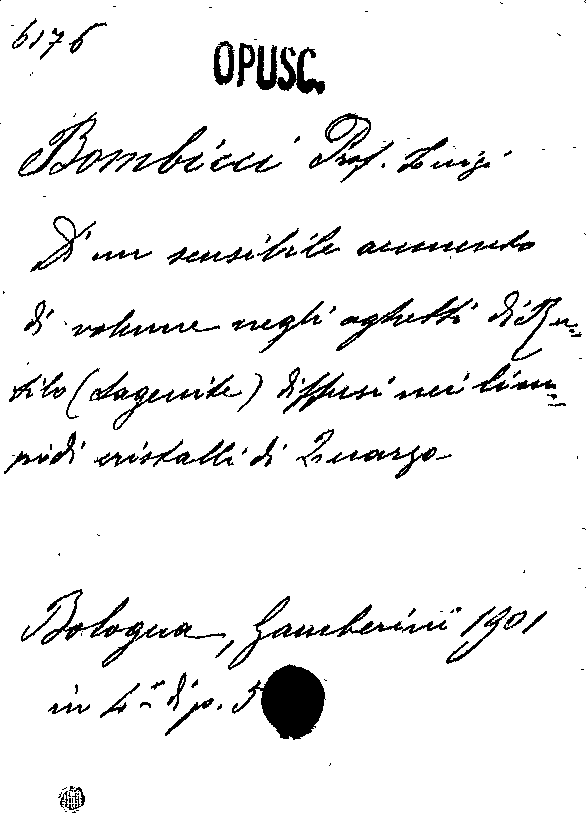 6176
OPUSC.
Bombicci Prof. Luigi
Di un sensibile aumento
di volume negli aghetti di Ru=
tilo (Sagenite) diffusi nei lim=
pidi cristalli di Quarzo
Bologna, Gamberini 1901
in 4º di p. 5